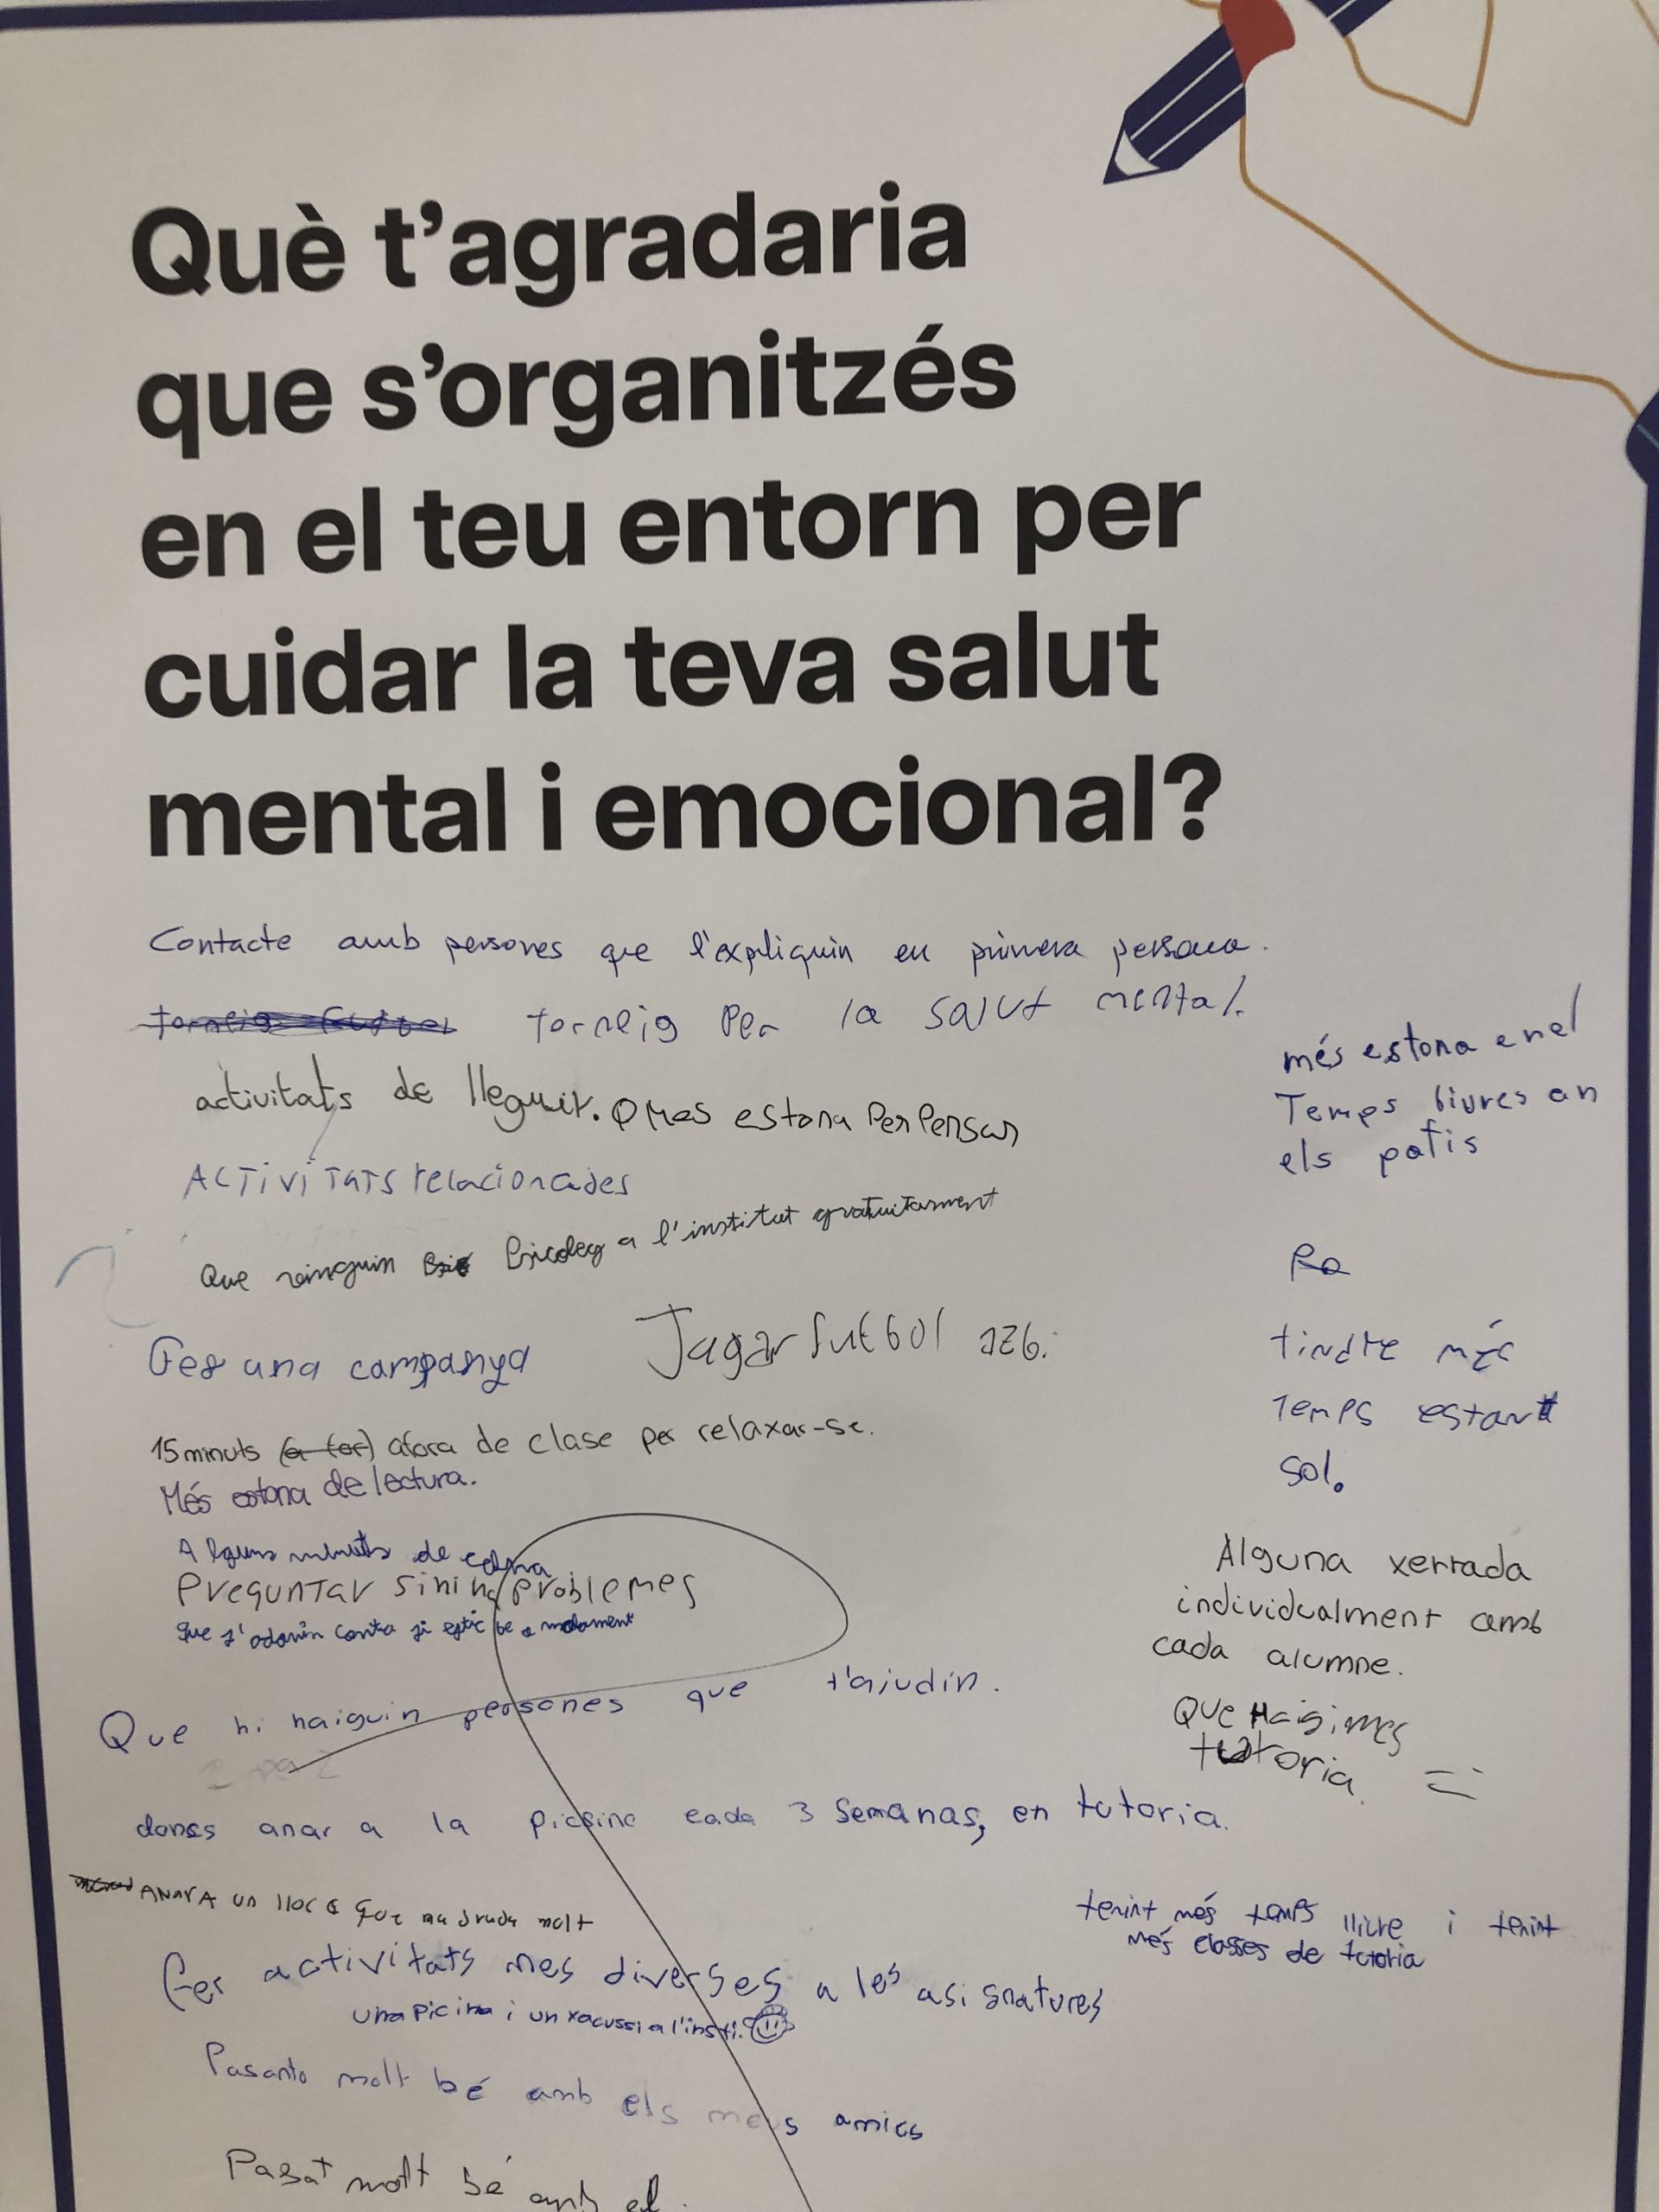 Què t'agradaria
que s'organitzés
en el teu entorn per
cuidar la teva salut
mental i emocional?
Contacte amb persones que l'expliquin en primera persona.
torneig futbol torneig Per la salut mental.
activitats de lleguir. Mes estona Per Pensar
més estona en el
Temps lliures an
els patis
ACTIVITATS relacionades
Que vinguin Psicoleg a l'institut gratuitament
Fer una campanya
Jugar futbol
tindre més
Temps estant
sol.
15 minuts (a for) afora de clase per relaxar-se.
Més estona de lectura.
Alguns minuts de calma
PreguntAr si hi ha problemes
Que s'adonin conta si estic be o malament
Alguna xerrada
individualment amb
cada alumne.
Que hi haiguin persones que t'ajudin.
Que Haigi mes
tutoria =)
doncs anar a la picsina cada 3 semanas, en tutoria.
ANAR A un lloc que molt
tenint més temps lliure i tenint
més classes de tutoria
fer activitats mes diverses a les asisnatures
Una Picina i un xacussi a l'insti.
Pasanto molt bé amb els meus amics
Pasat molt bé amb el